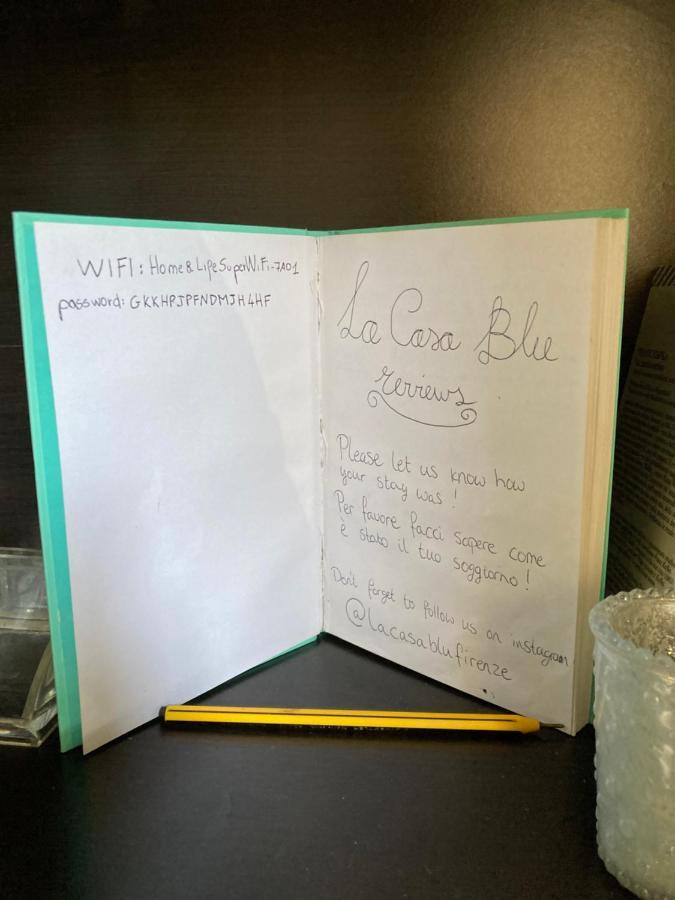 WIFI: Home&LifeSuperWiFi-7A01
password: GKKHPJPFNDMJH4HF
La Casa Blu
reviews
Please let us know how
your stay was !
Per favore facci sapere come
è stato il tuo soggiorno !
Don't forget to follow us on instagram
@lacasablufirenze